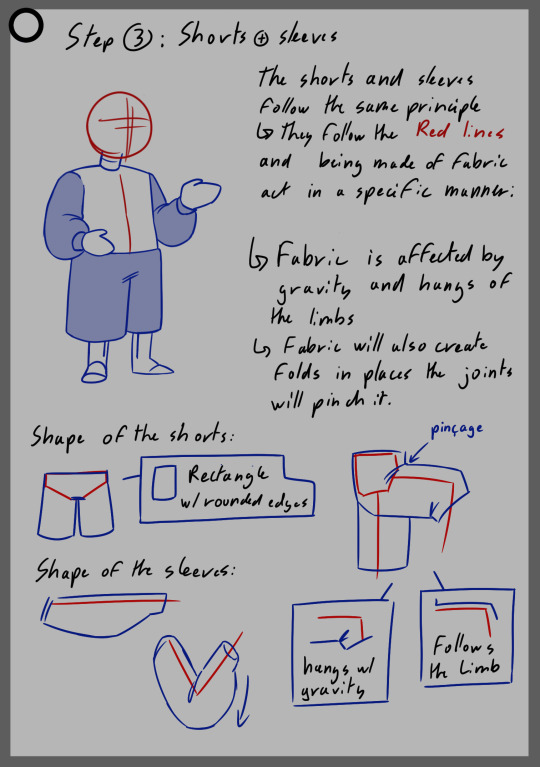 Step 3: Shorts ⊕ sleeves
The shorts and sleeves
Follow the same principle
↳ They follow the Red lines
and being made of fabric
act in a specific manner:
↳ Fabric is affected by
gravity and hangs of
the limbs
↳ Fabric will also create
Folds in places the joints
will pinch it.
Shape of the shorts:
Rectangle
w/ rounded edges
pinçage
Shape of the sleeves:
hangs w/
gravity
Follows
the Limb